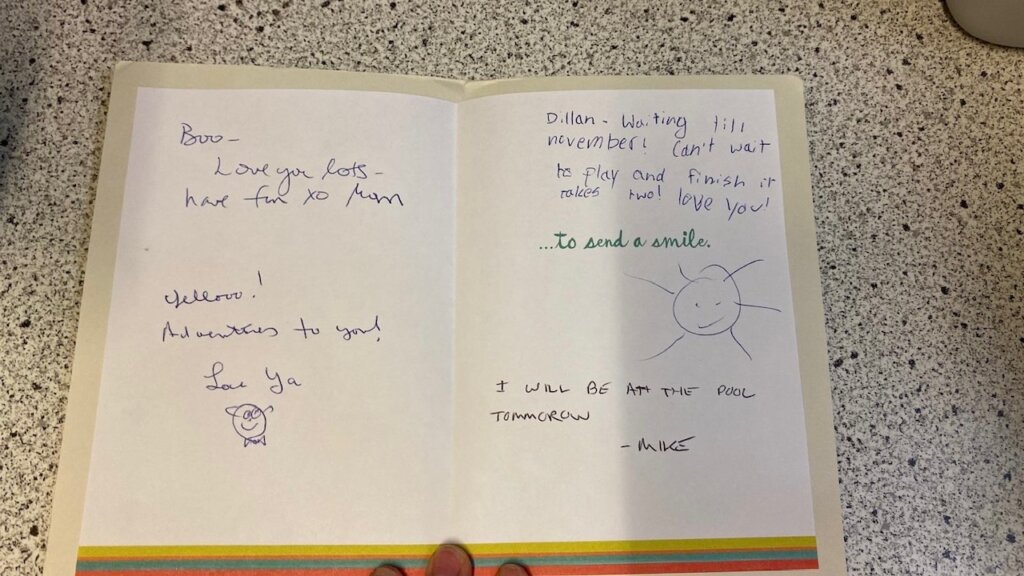 Boo -
Love you lots -
have fun xo Mom
Yellooo!
Adventures to you!
Love Ya
Dillan - Waiting till
november! Can't wait
to play and finish it
takes two! love you!
...to send a smile.
I WILL BE AT THE POOL
TOMMOROW
- MIKE